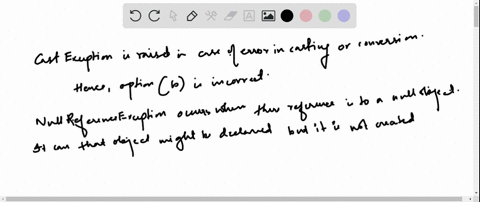 Cast Exception is raised in case of error in casting or conversion.
Hence, option (b) is incorrect.
NullReferenceException occurs when the reference is to a null object.
that object might be declared but it is not created